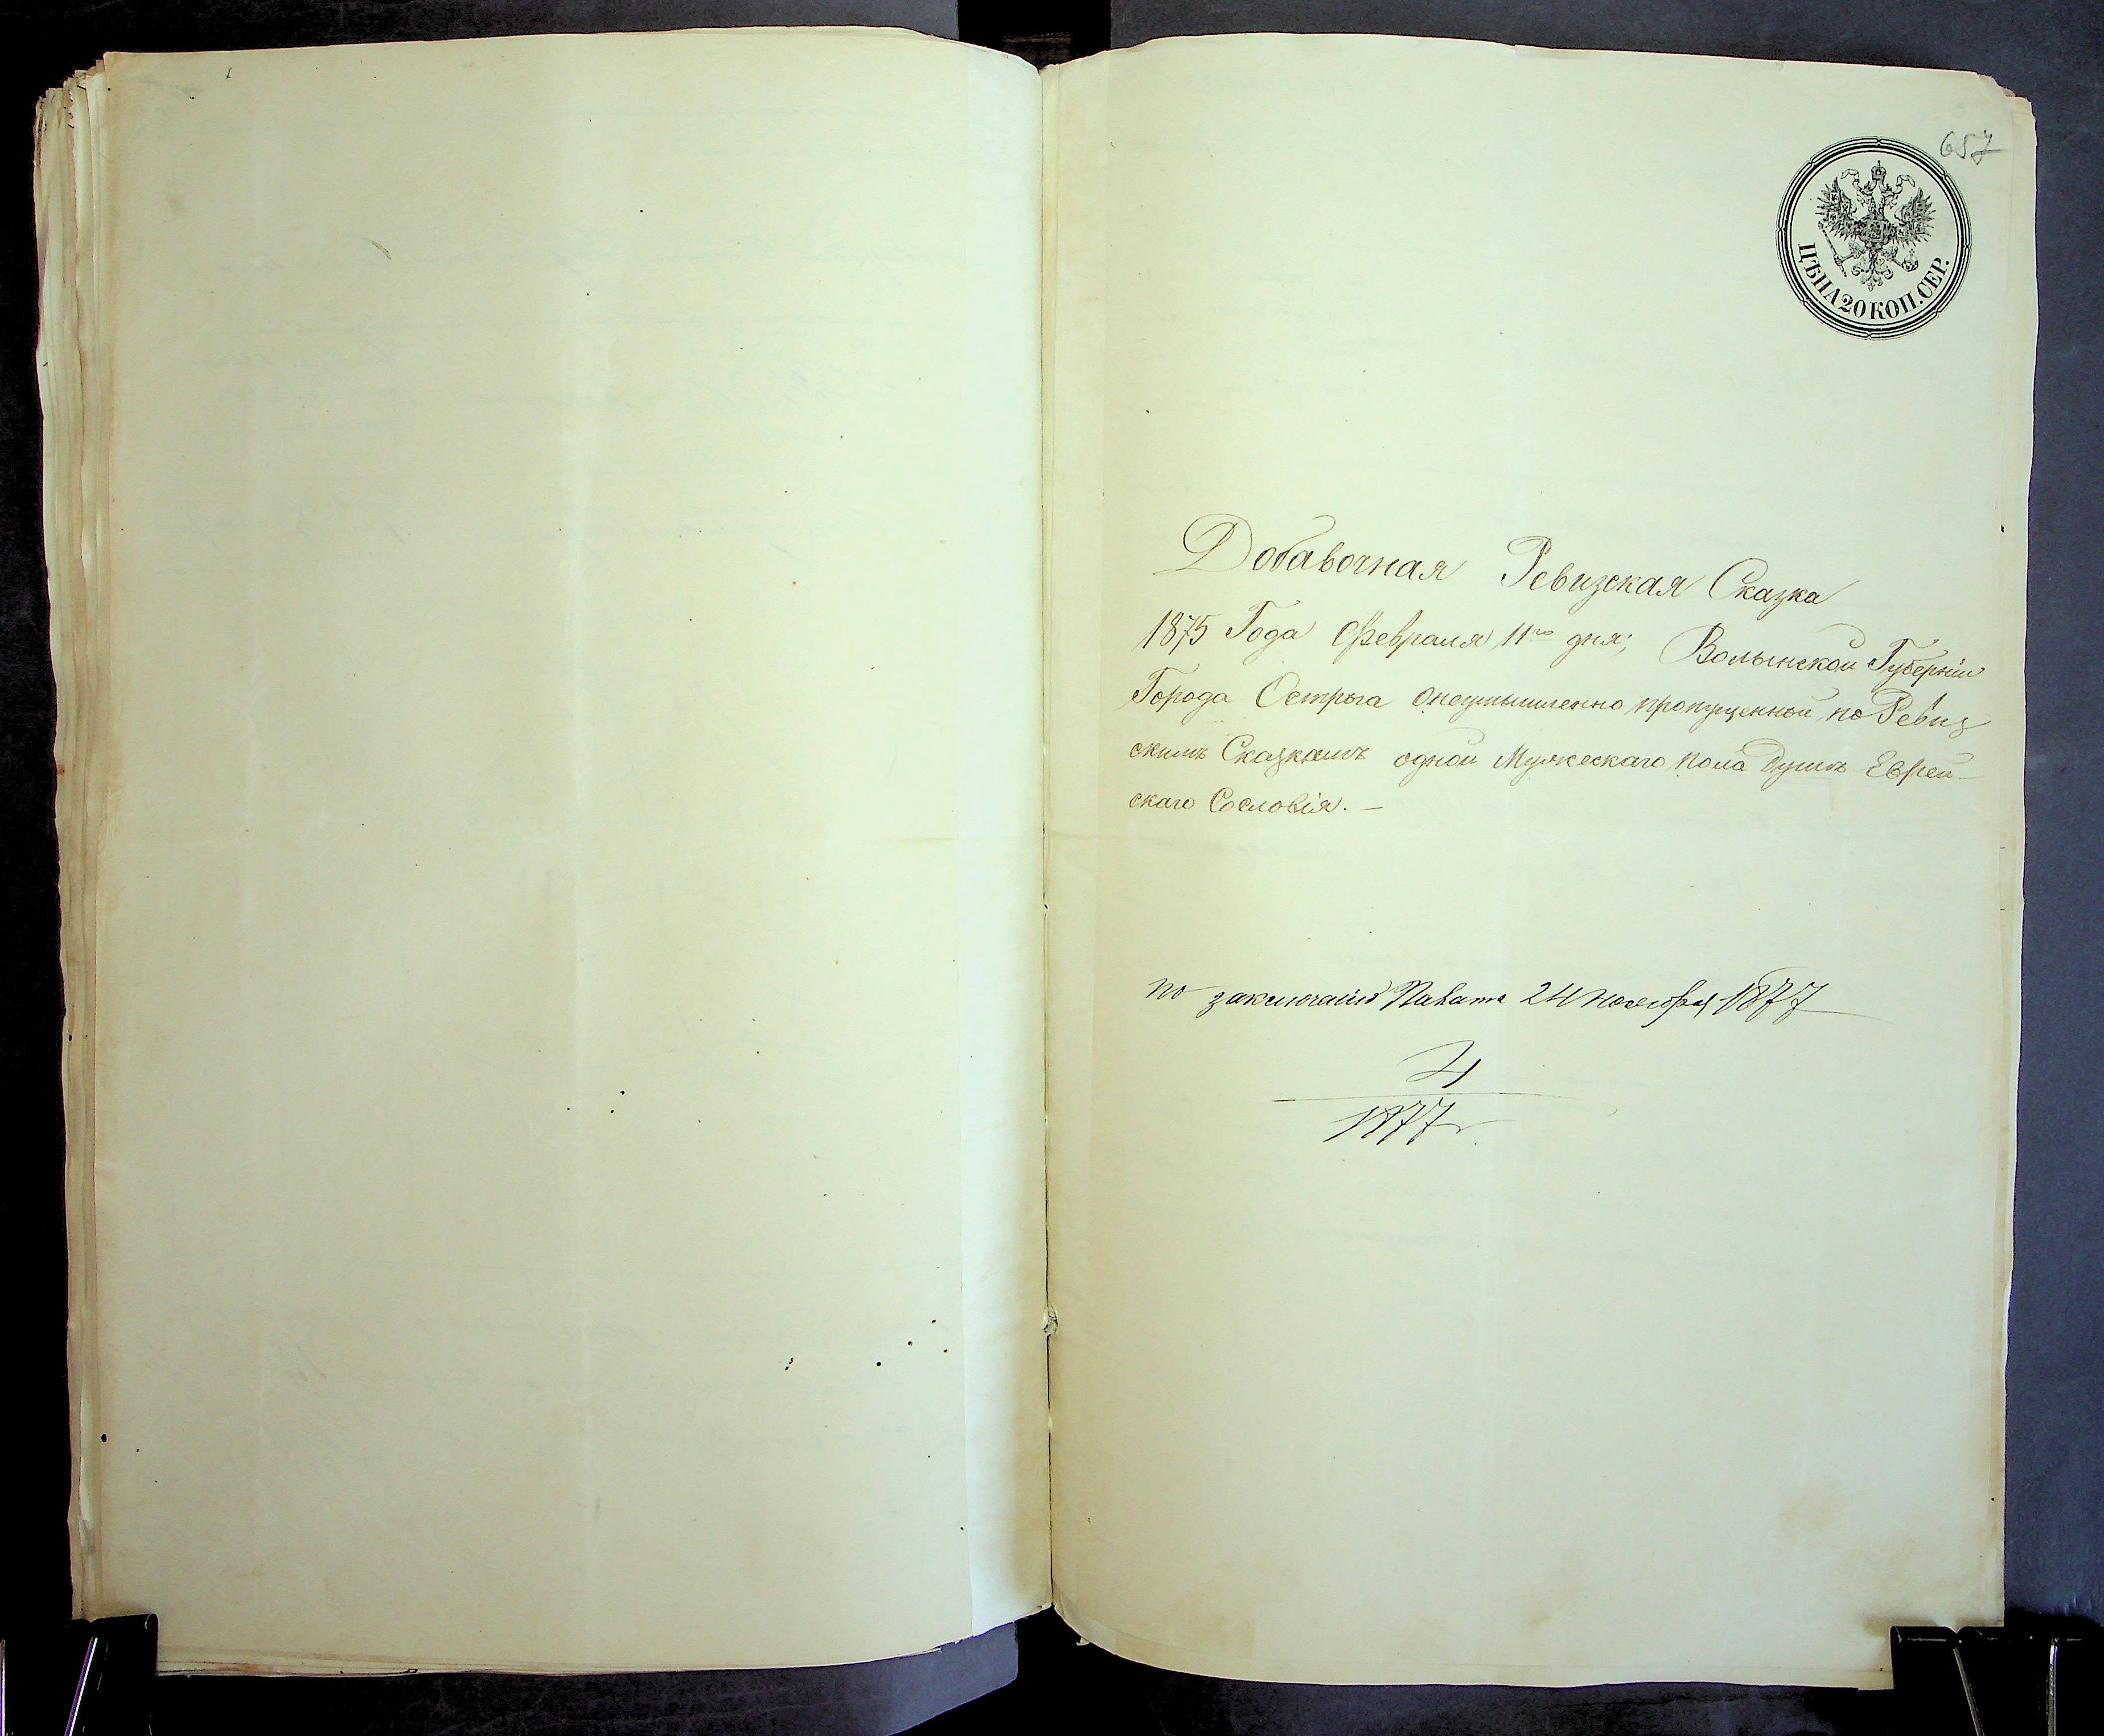 657
ЦѢНА 20 КОП. СЕР.
Добавочная Ревизская Сказка
1875 Года Февраля 11го дня; Волынской Губернии
Города Острога о неумышленно пропущенной по Ревиз
скимъ Сказкамъ одной Мужескаго пола Душѣ Еврей-
скаго Сословія. —
по заключенію Палаты 24 ноября 1877
4
1877 г.